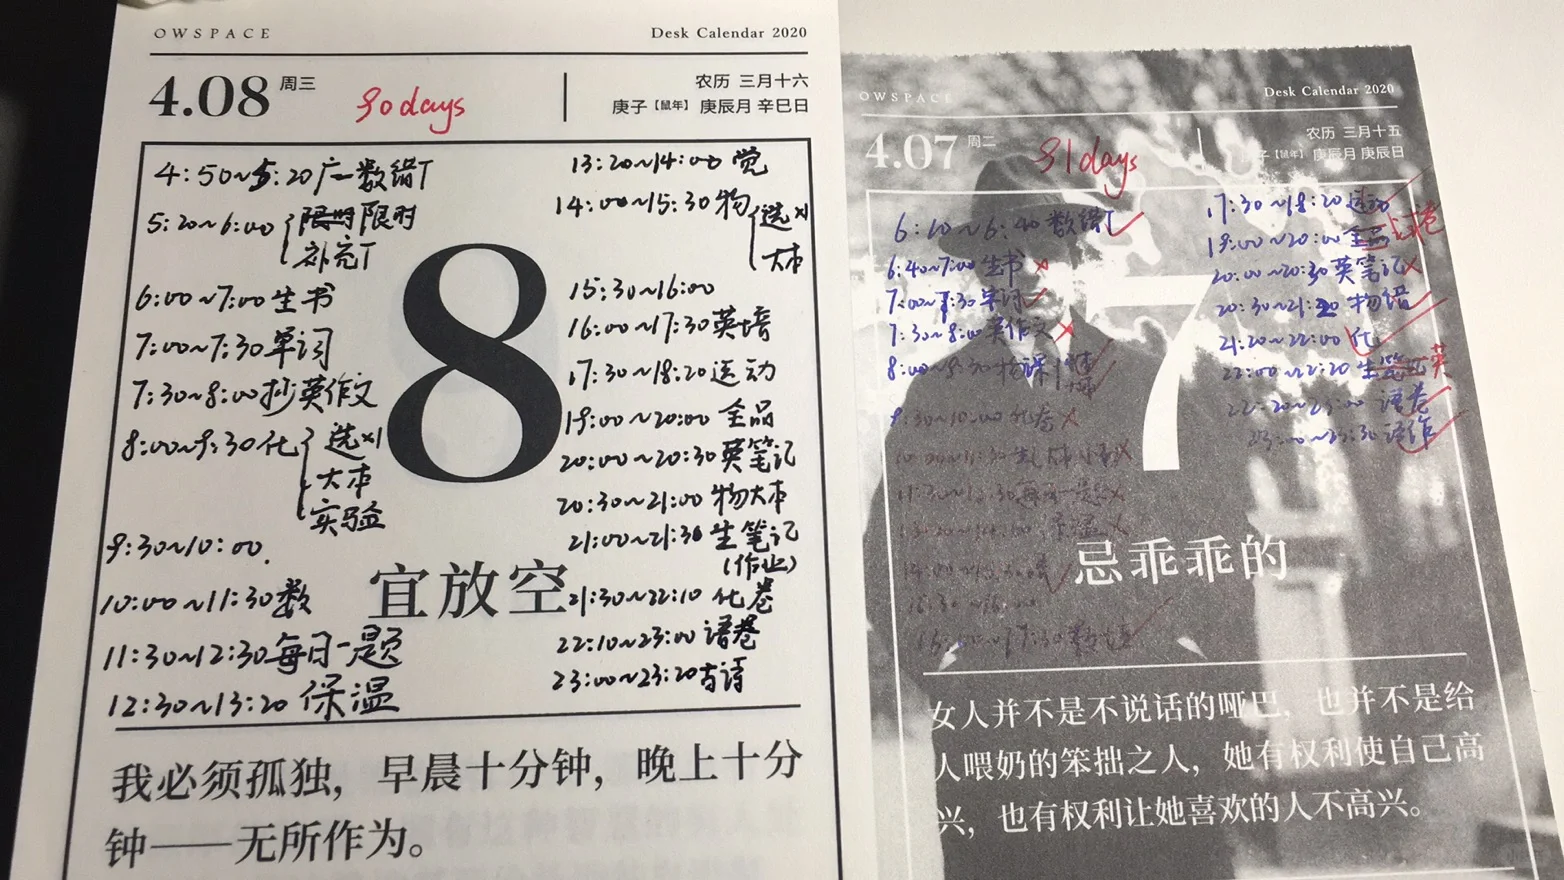 OWSPACE
Desk Calendar 2020
4.08 周三 90days
农历 三月十六
庚子【鼠年】 庚辰月 辛巳日
4:50~5:20 广一数错T
5:20~6:00 限时 限时
补充T
6:00~7:00 生书
7:00~7:30 单词
7:30~8:00 抄英作文
8:00~9:30 化 选x1
大本
实验
9:30~10:00
10:00~11:30 数
11:30~12:30 每日一题
12:30~13:20 保温
8
13:20~14:00 觉
14:00~15:30 物 选x1
大本
15:30~16:00
16:00~17:30 英培
17:30~18:20 运动
19:00~20:00 全品
20:00~20:30 英笔记
20:30~21:00 物大本
21:00~21:30 生笔记
(作业)
21:30~22:10 化卷
22:10~23:00 语卷
23:00~23:20 古诗
宜放空
我必须孤独，早晨十分钟，晚上十分
钟——无所作为。
OWSPACE
Desk Calendar 2020
4.07 周二 91days
农历 三月十五
【鼠年】 庚辰月 庚辰日
6:10~6:40 数错T
6:40~7:00 生书
7:00~7:30 单词
7:30~8:00 英作文
8:00~9:30 物
9:30~10:00 化卷
17:30~18:20 运动
19:00~20:00 全品
20:00~20:30 英笔记
20:30~21:20 物错
21:20~22:00 化
22:00~22:20 生笔记 英
22:20~23:00 语卷
23:00~23:30 语作
7
忌乖乖的
女人并不是不说话的哑巴，也并不是给
人喂奶的笨拙之人，她有权利使自己高
兴，也有权利让她喜欢的人不高兴。